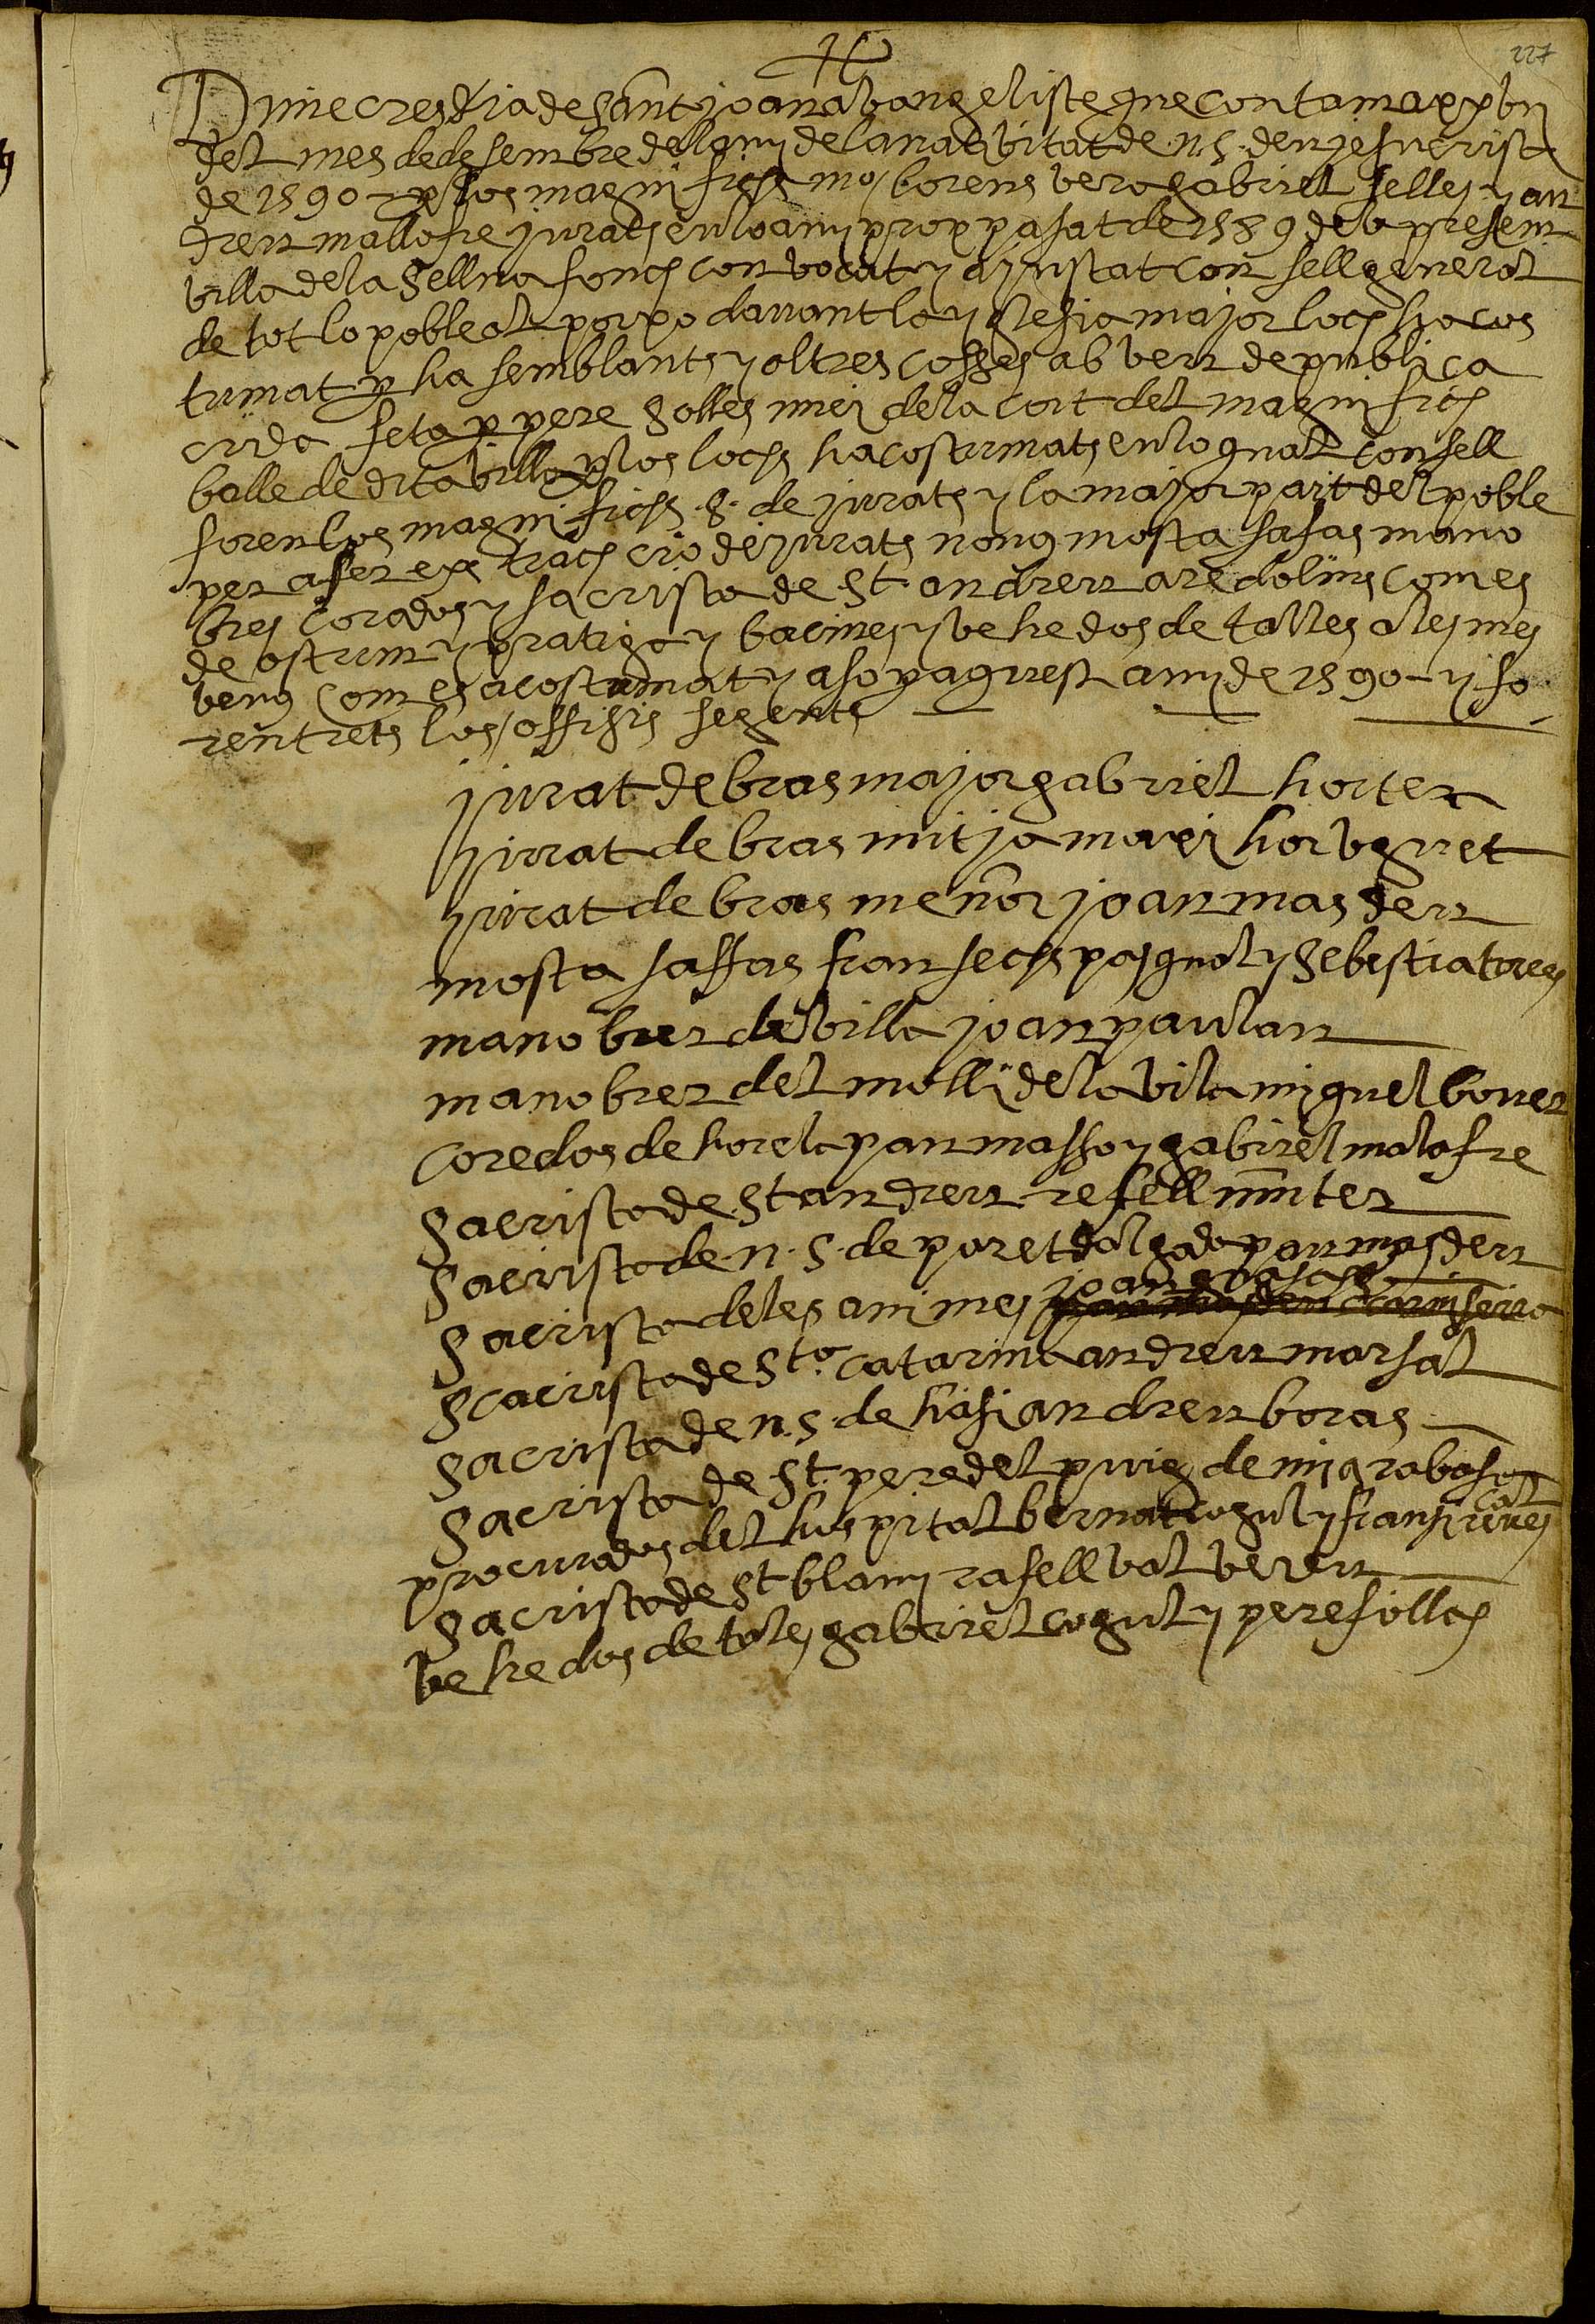 227
Dimecres dia de Sant joan avangeliste que contam a xxvij
del mes de desembre del lany de la nativitat de n. S. den jesucrist
de 1590 - per los magnifichs mo/ borens vero gabriel selles y an
dreu mallofre jurats en lo any prop pasat de 1589 de la present
villa de la Sellva fonch convocat y ajustat consell general
de tot lo poble al porxo davant la yglesia major loch ha cos
tumat per ha semblants y altres cosses ab veu de publica
crida feta per pere Solles nuci de la cort del magnifich
balle de dita villa per los lochs hacostumats en lo qual consell
foren los magnifichs .S. de jurats y la major part del poble
per a fer extrach cio de jurats nous mostasafas mano
bres coredos y sacrista de St. andreu a redolins com es
de costum y pratiga y bacines y vehedos de talles a les mes
veus com es acostumat y aso per aquest any de 1590 - y fo
ren trets los offisis segents
jurat de bras major gabriel horter
jurat de bras mitja marti horvguet
jurat de bras menor joan masdeu
mosta saffas fransech pasqual y Sebestia tores
manobrer de villa joan paulau
manobrer del molli de la vila miquel bover
coredos de horela pau masso y gabriel malafre
Sacrista de St andreu refell munter
Sacrista de n. S. de paret dalgada pau masdeu
Sacrista de les animes joan
Scacrista de Sta. catarina andreu marsal
Sacrista de n. S. de hasi andreu boras
Sacrista de St. pere del puig de mia rabasa
procurados del hospital bernat cogul y fransi
Sacrista de St blay rafell val vereu
vehedos de tales gabriel cogul y pere folch